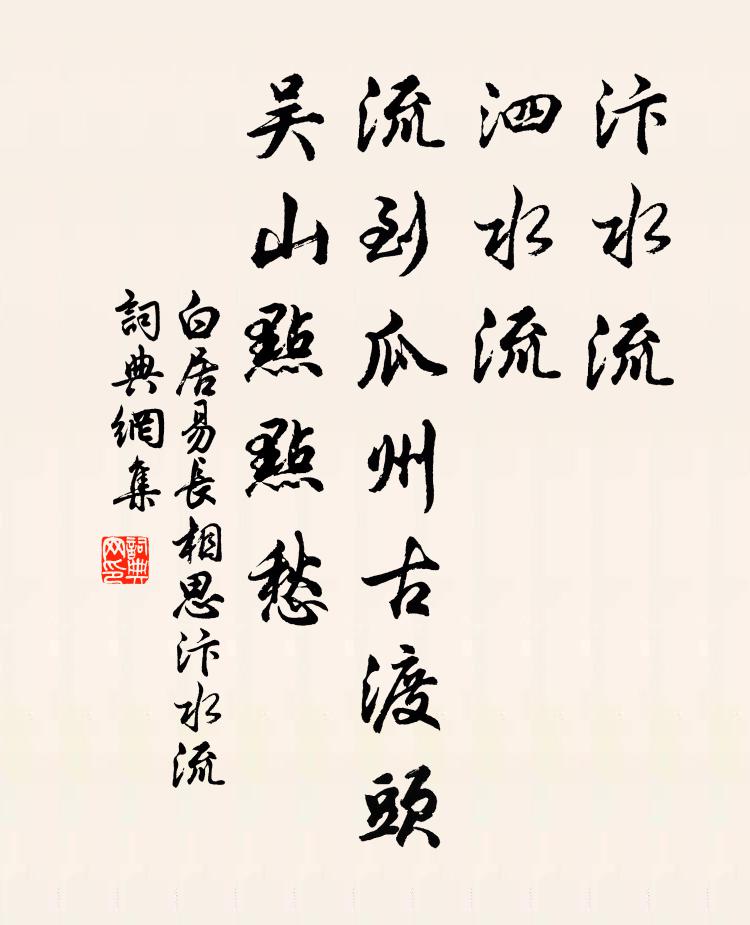 汴水流
泗水流
流到瓜州古渡頭
吴山點點愁
白居易長相思汴水流
詞典網集
詞典网印